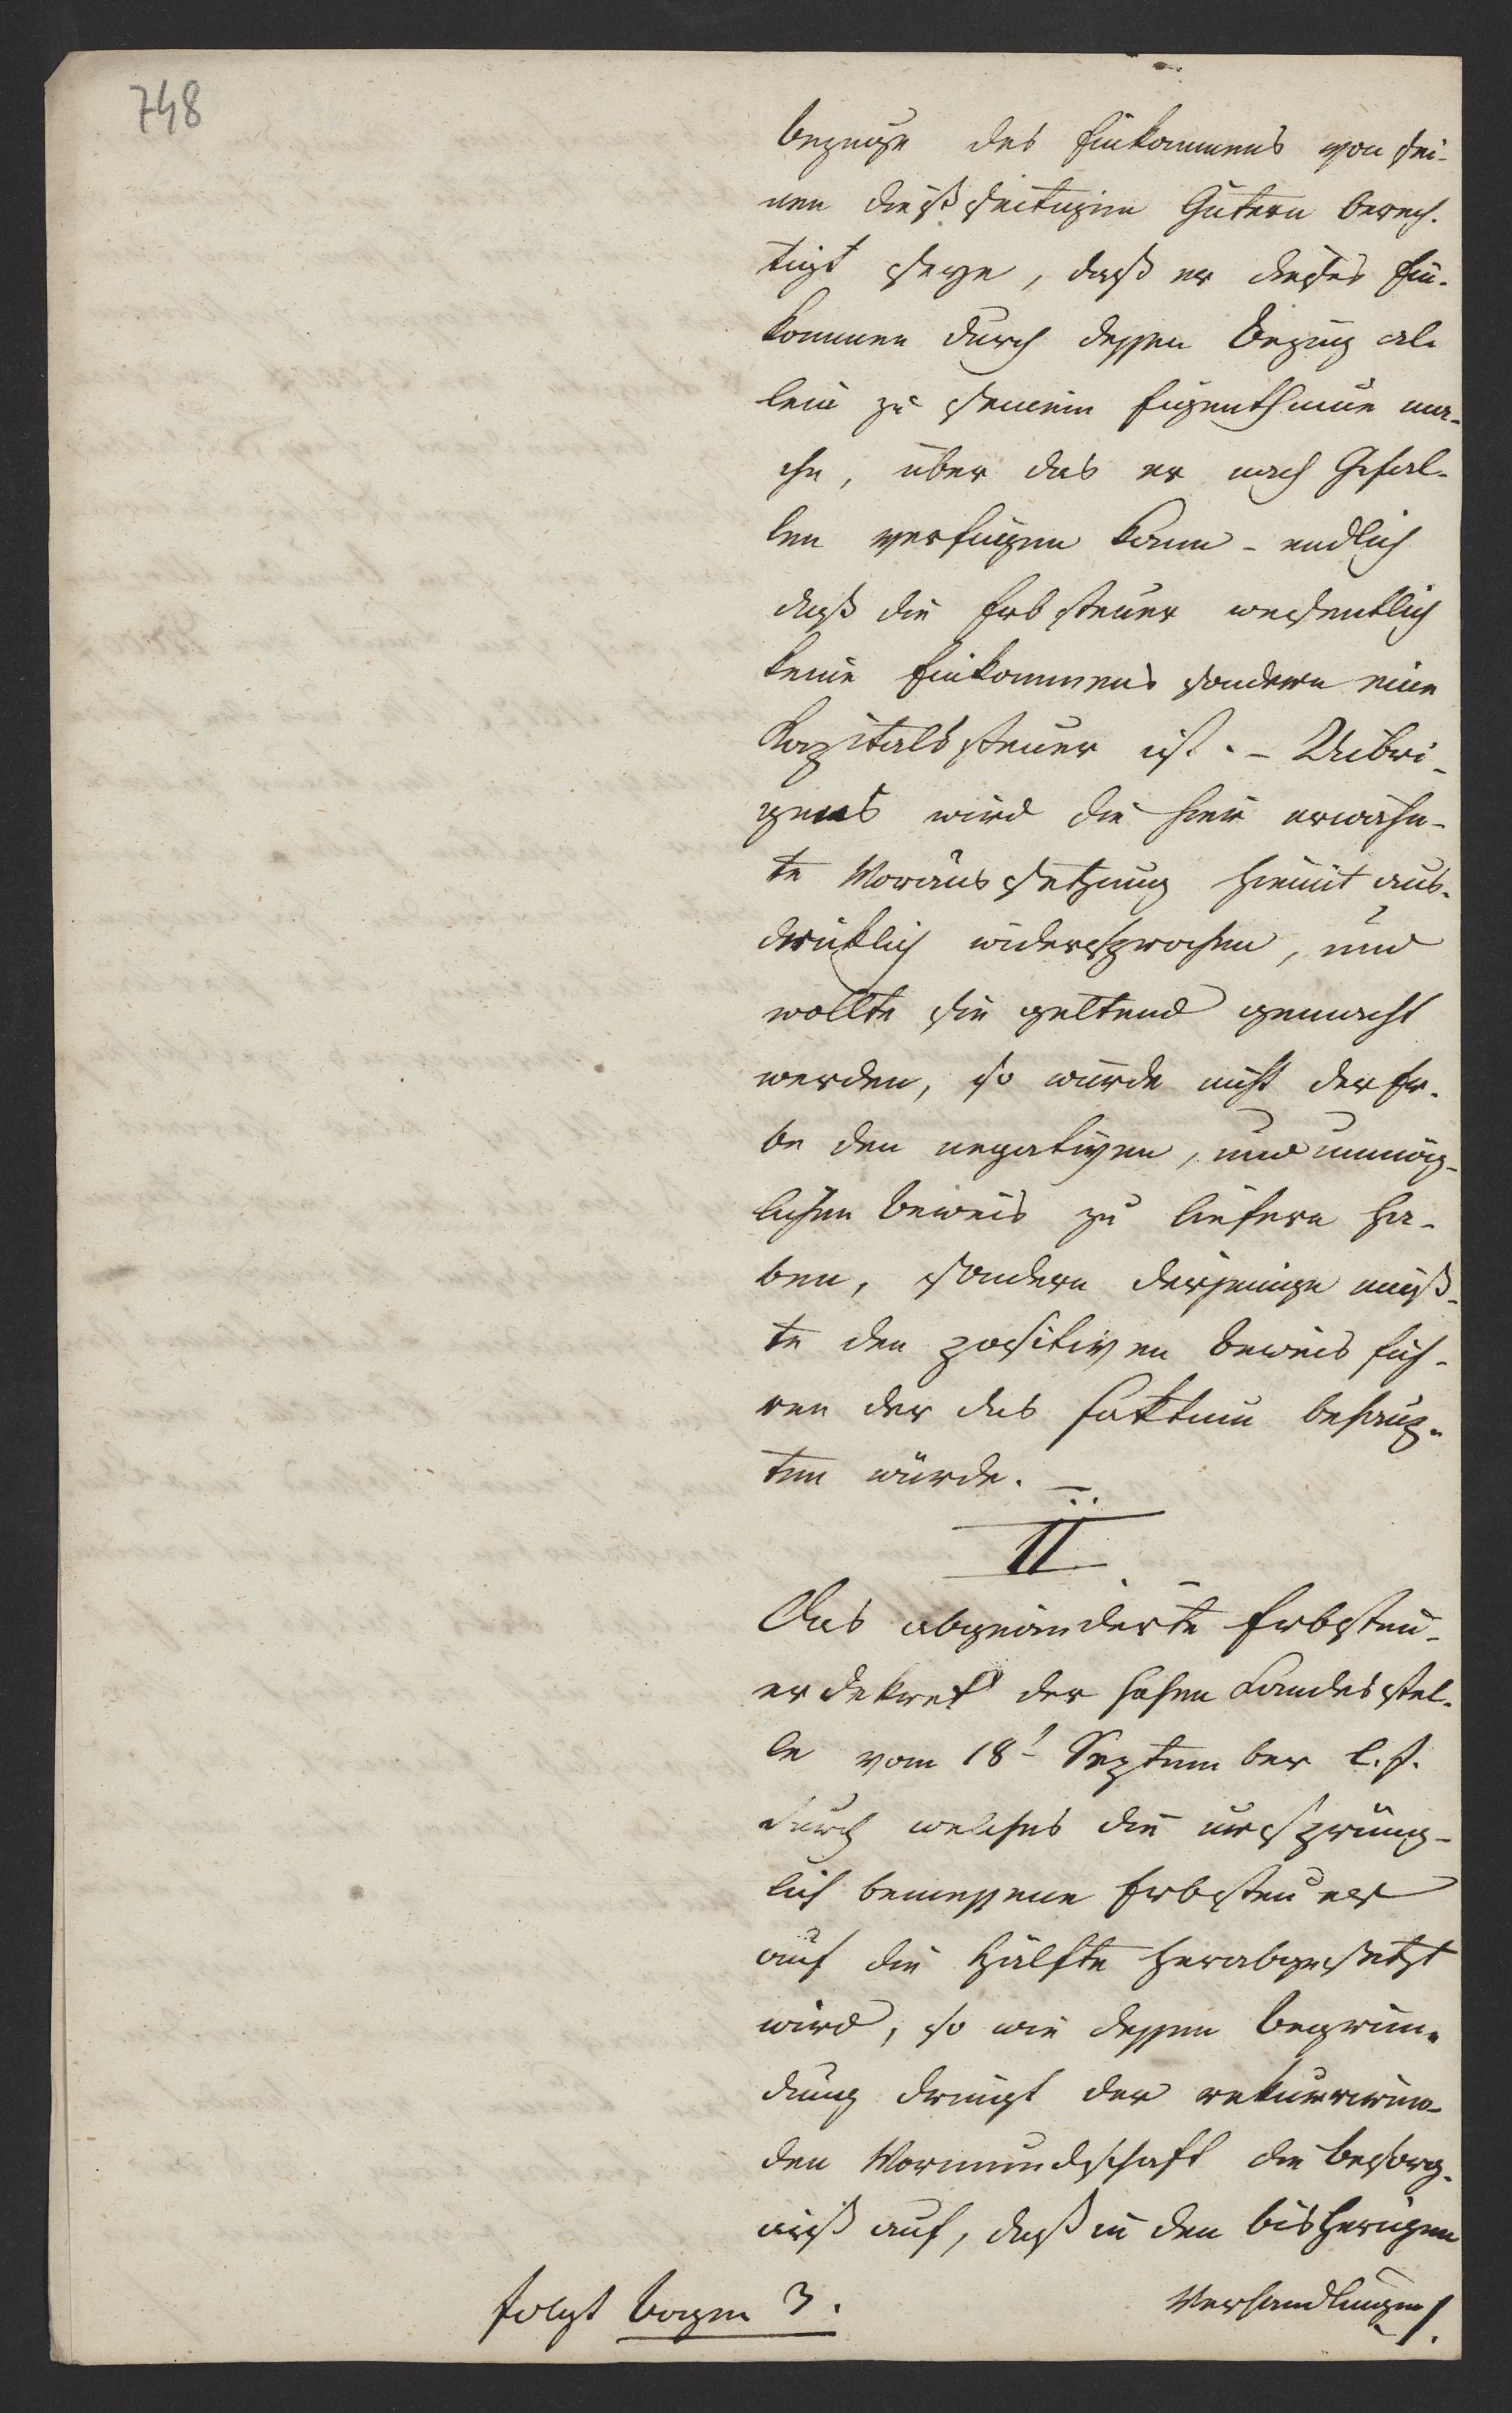 748
bezuge des Einkommens von sei-
nen dießseitigen Gütern berech-
tigt seye, daß er dieses Ein-
kommen durch dessen Bezug al-
lein zu seinem Eigenthume ma-
che, über das er nach Gefal-
len verfügen kann - endlich
daß die Erbsteuer wesentlich
keine Einkommens sondern eine
Kapitalssteuer ist. - Uibri-
gens wird die hier erwähn-
te Voraussetzung hiemit aus-
drüklich widersprochen, und
wollte sie geltend gemacht
werden, so würde nicht der Er-
be den negativen, und unmög-
lichen Beweis zu liefern ha-
ben, sondern derjenige müß-
te den positiven Beweis füh-
ren der das Faktum behaup-
ten würde. -
II
Das abgeänderte Erbsteu-
erdekret der hohen Landesstel-
le vom 18t September l. J.
durch welches die ursprüng-
lich bemessene Erbsteuer
auf die Hälfte herabgesetzt
wird, so wie dessen Begrün-
dung dringt der rekurriren-
den Vormundschaft die Besorg-
niß auf, daß in den bisherigen
folgt Bogen 3.
Verhandlungen /.